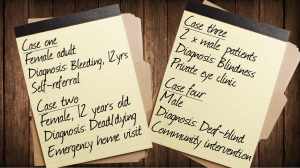 Case one
Female adult
Diagnosis: Bleeding, 12yrs
Self-referral
Case two
Female, 12 years old
Diagnosis: Dead/dying
Emergency home visit
Case three
2 x male patients
Diagnosis: Blindness
Private eye clinic
Case four
Male
Diagnosis: Deaf-blind
Community intervention